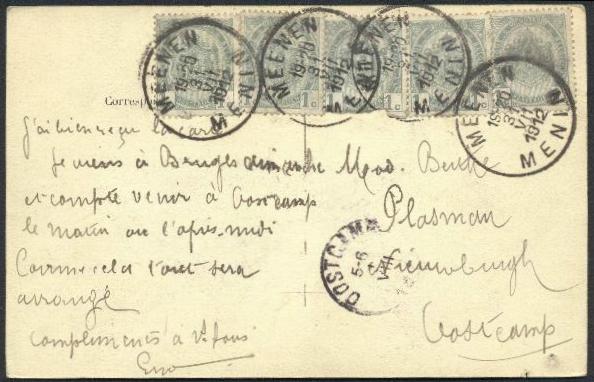 MEENEN 19-20 31 VII 1912 MENIN
MEENEN 19-20 31 VII 1912 MENIN
MEENEN 19-20 31 VII 1912 MENIN
MEENEN 19-20 31 VII 1912 MENIN
1c
1c
1c
Corresp
J'ai bien reçu la carte
Je viens à Bruges dimanche
et compte venir à Oostcamp
le matin ou l'après-midi
Comme cela tout sera
arrangé
compliments à Vs tous
Mad. Berthe
Plasman
Nieuwburgh
Oostcamp
OOSTCAMP
5-6
VIII